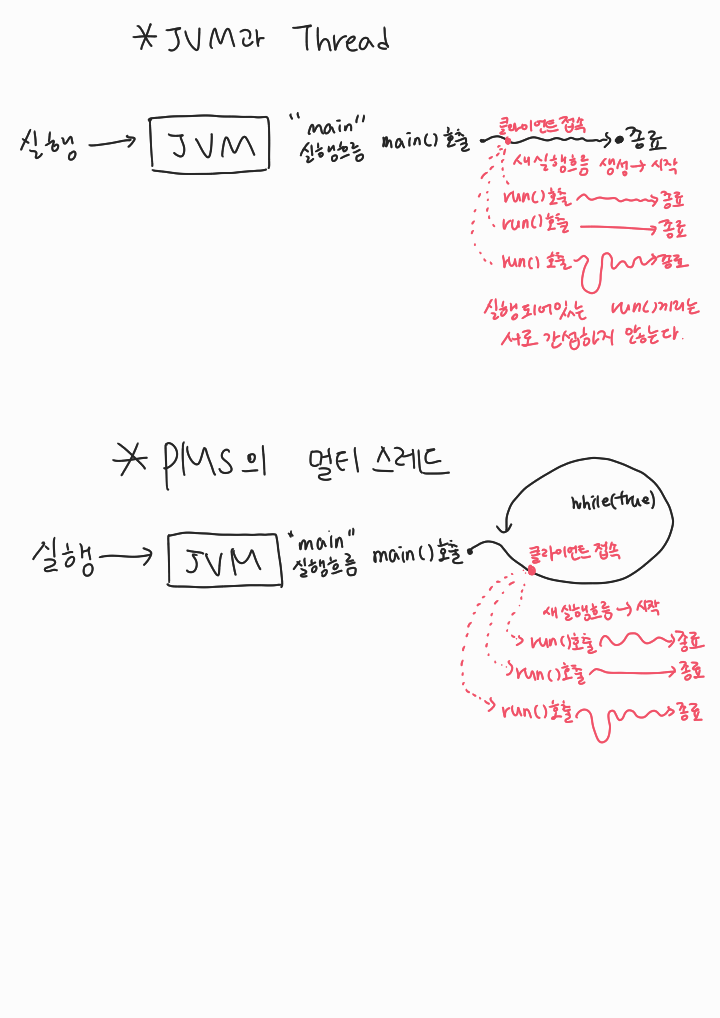 * JVM과 Thread
실행 → JVM "main" 실행흐름 main() 호출 종료
클라이언트 접속
새 실행흐름 생성 → 시작
run() 호출 → 종료
run() 호출 → 종료
run() 호출 → 종료
실행되어있는 run()끼리는
서로 간섭하지 않는다.
* PMS의 멀티 스레드
while(true)
실행 → JVM "main" 실행흐름 main() 호출
클라이언트 접속
새 실행흐름 → 시작
run() 호출 → 종료
run() 호출 → 종료
run() 호출 → 종료